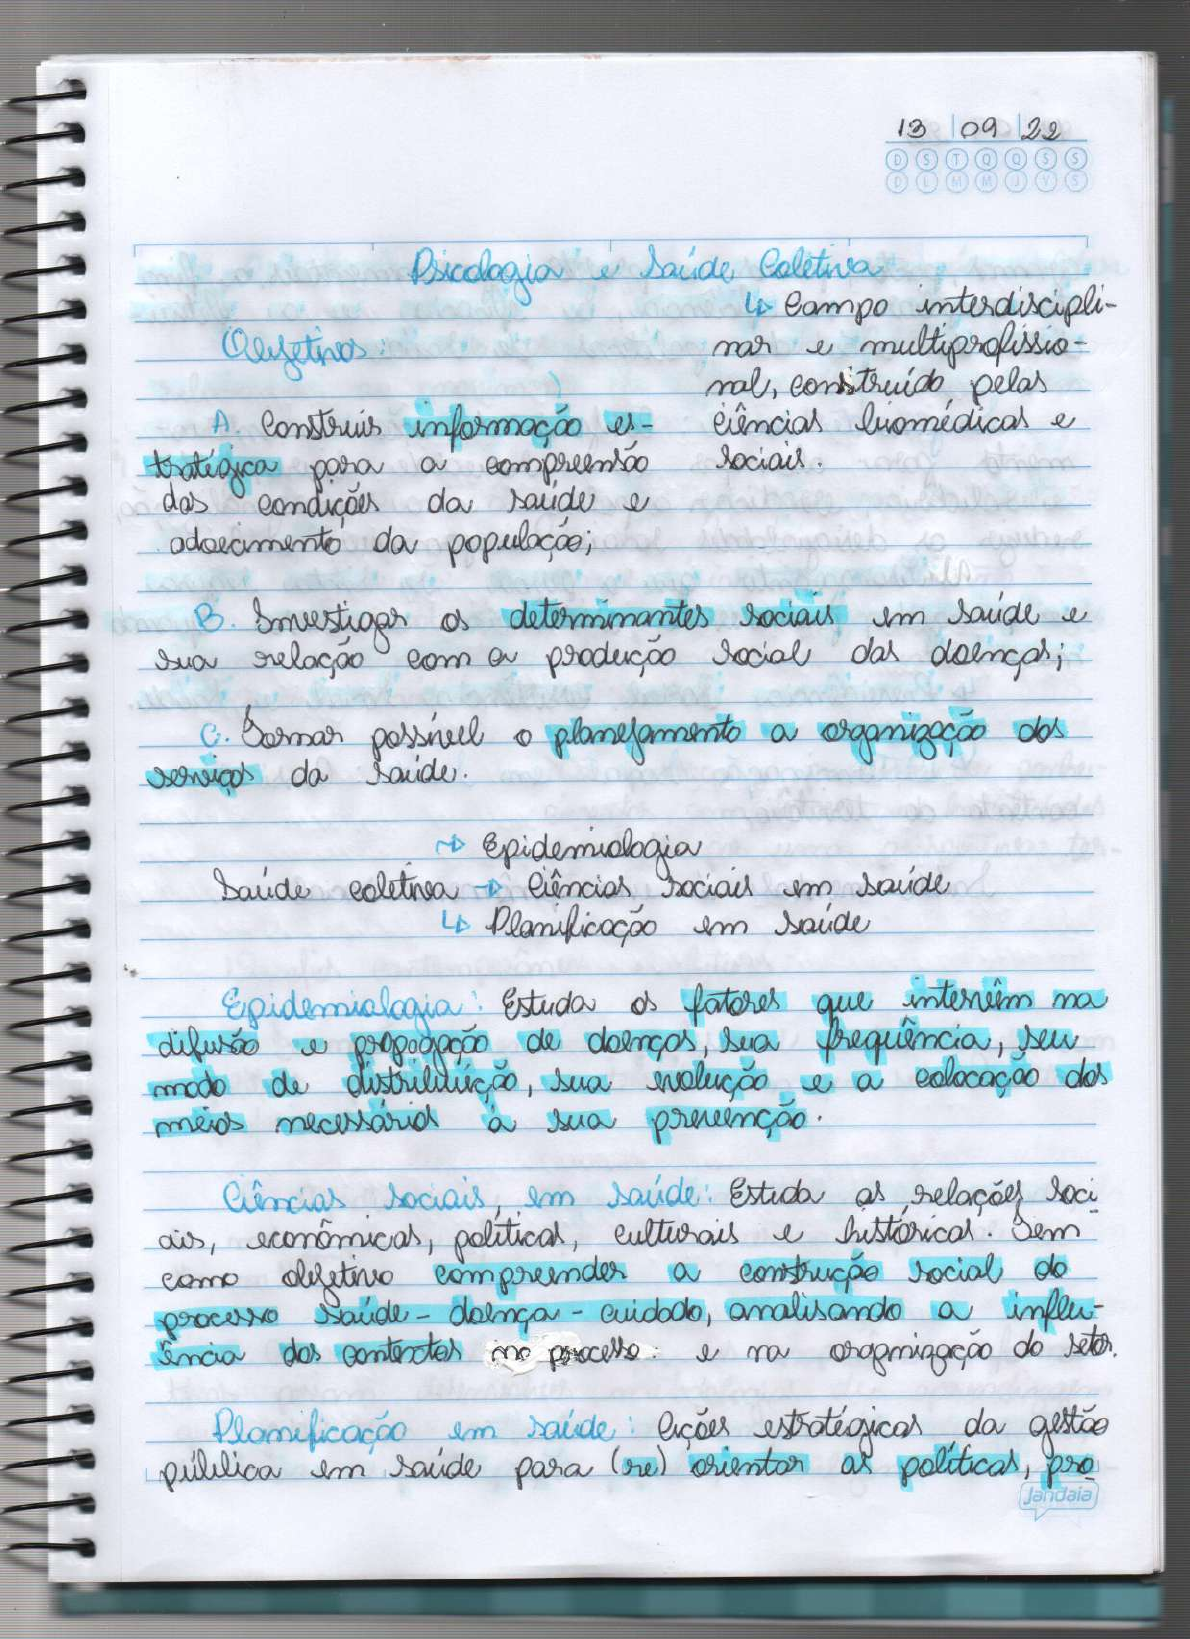 13 | 09 | 22
D S T Q Q S S
D L M M J V S
Psicologia e Saúde Coletiva
↳ Campo interdiscipli-
nar e multiprofissio-
nal, construído pelas
ciências biomédicas e
sociais.
Objetivos:
A. Construir informação es-
tratégica para a compreensão
das condições da saúde e
adoecimento da população;
B. Investigar os determinantes sociais em saúde e
sua relação com a produção social das doenças;
C. Tornar possível o planejamento a organização dos
serviços da saúde.
→ Epidemiologia
Saúde coletiva → Ciências sociais em saúde
↳ Planificação em saúde
Epidemiologia: Estuda os fatores que intervêm na
difusão e propagação de doenças, sua frequência, seu
modo de distribuição, sua evolução e a colocação dos
meios necessários à sua prevenção.
Ciências sociais em saúde: Estuda as relações soci-
ais, econômicas, políticas, culturais e históricas. Tem
como objetivo compreender a construção social do
processo saúde-doença-cuidado, analisando a influ-
ência dos contextos no processo e na organização do setor.
Planificação em saúde: Ações estratégicas da gestão
pública em saúde para (re) orientar as políticas, pro-
Jandaia